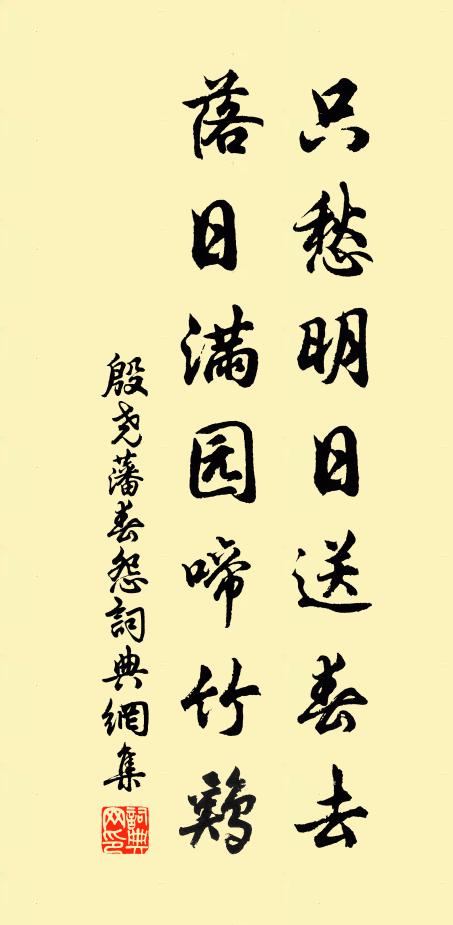 只愁明日送春去
落日满园啼竹鸡
殷尧藩春怨詞典網集
詞典網印